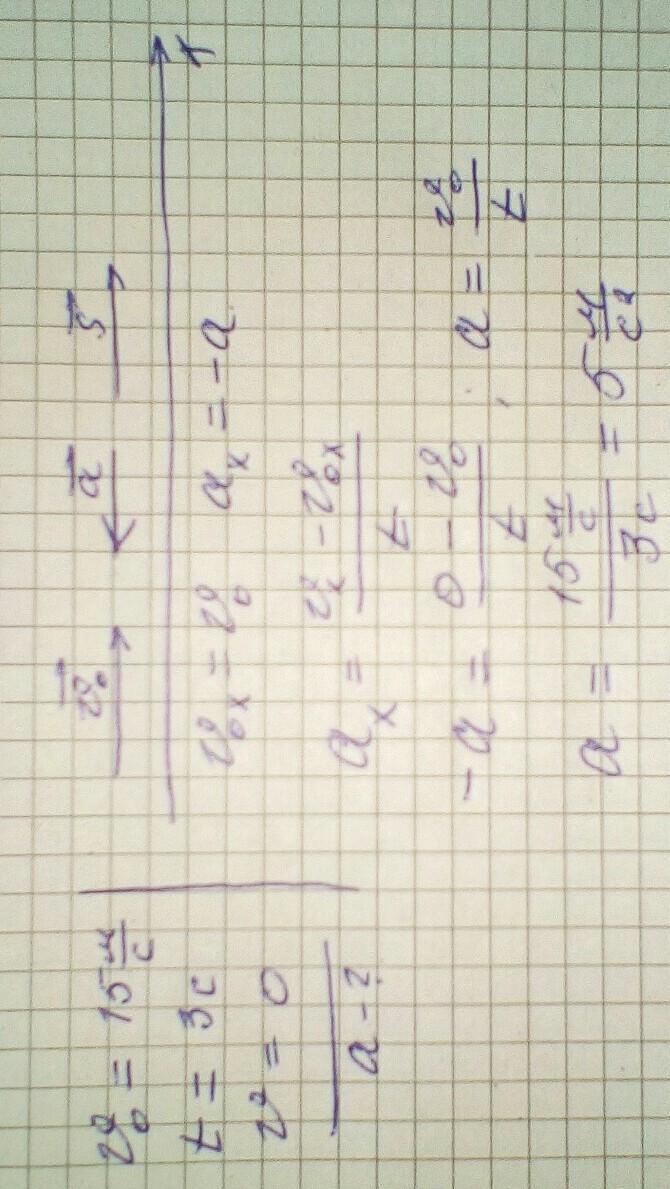 v₀ = 15 м/с
t = 3с
v = 0
a - ?
v⃗₀ a⃗ s⃗
x
v₀ₓ = v₀ aₓ = -a
aₓ = (vₓ - v₀ₓ)/t
-a = (0 - v₀)/t , a = v₀/t
a = (15 м/с)/(3с) = 5 м/с²